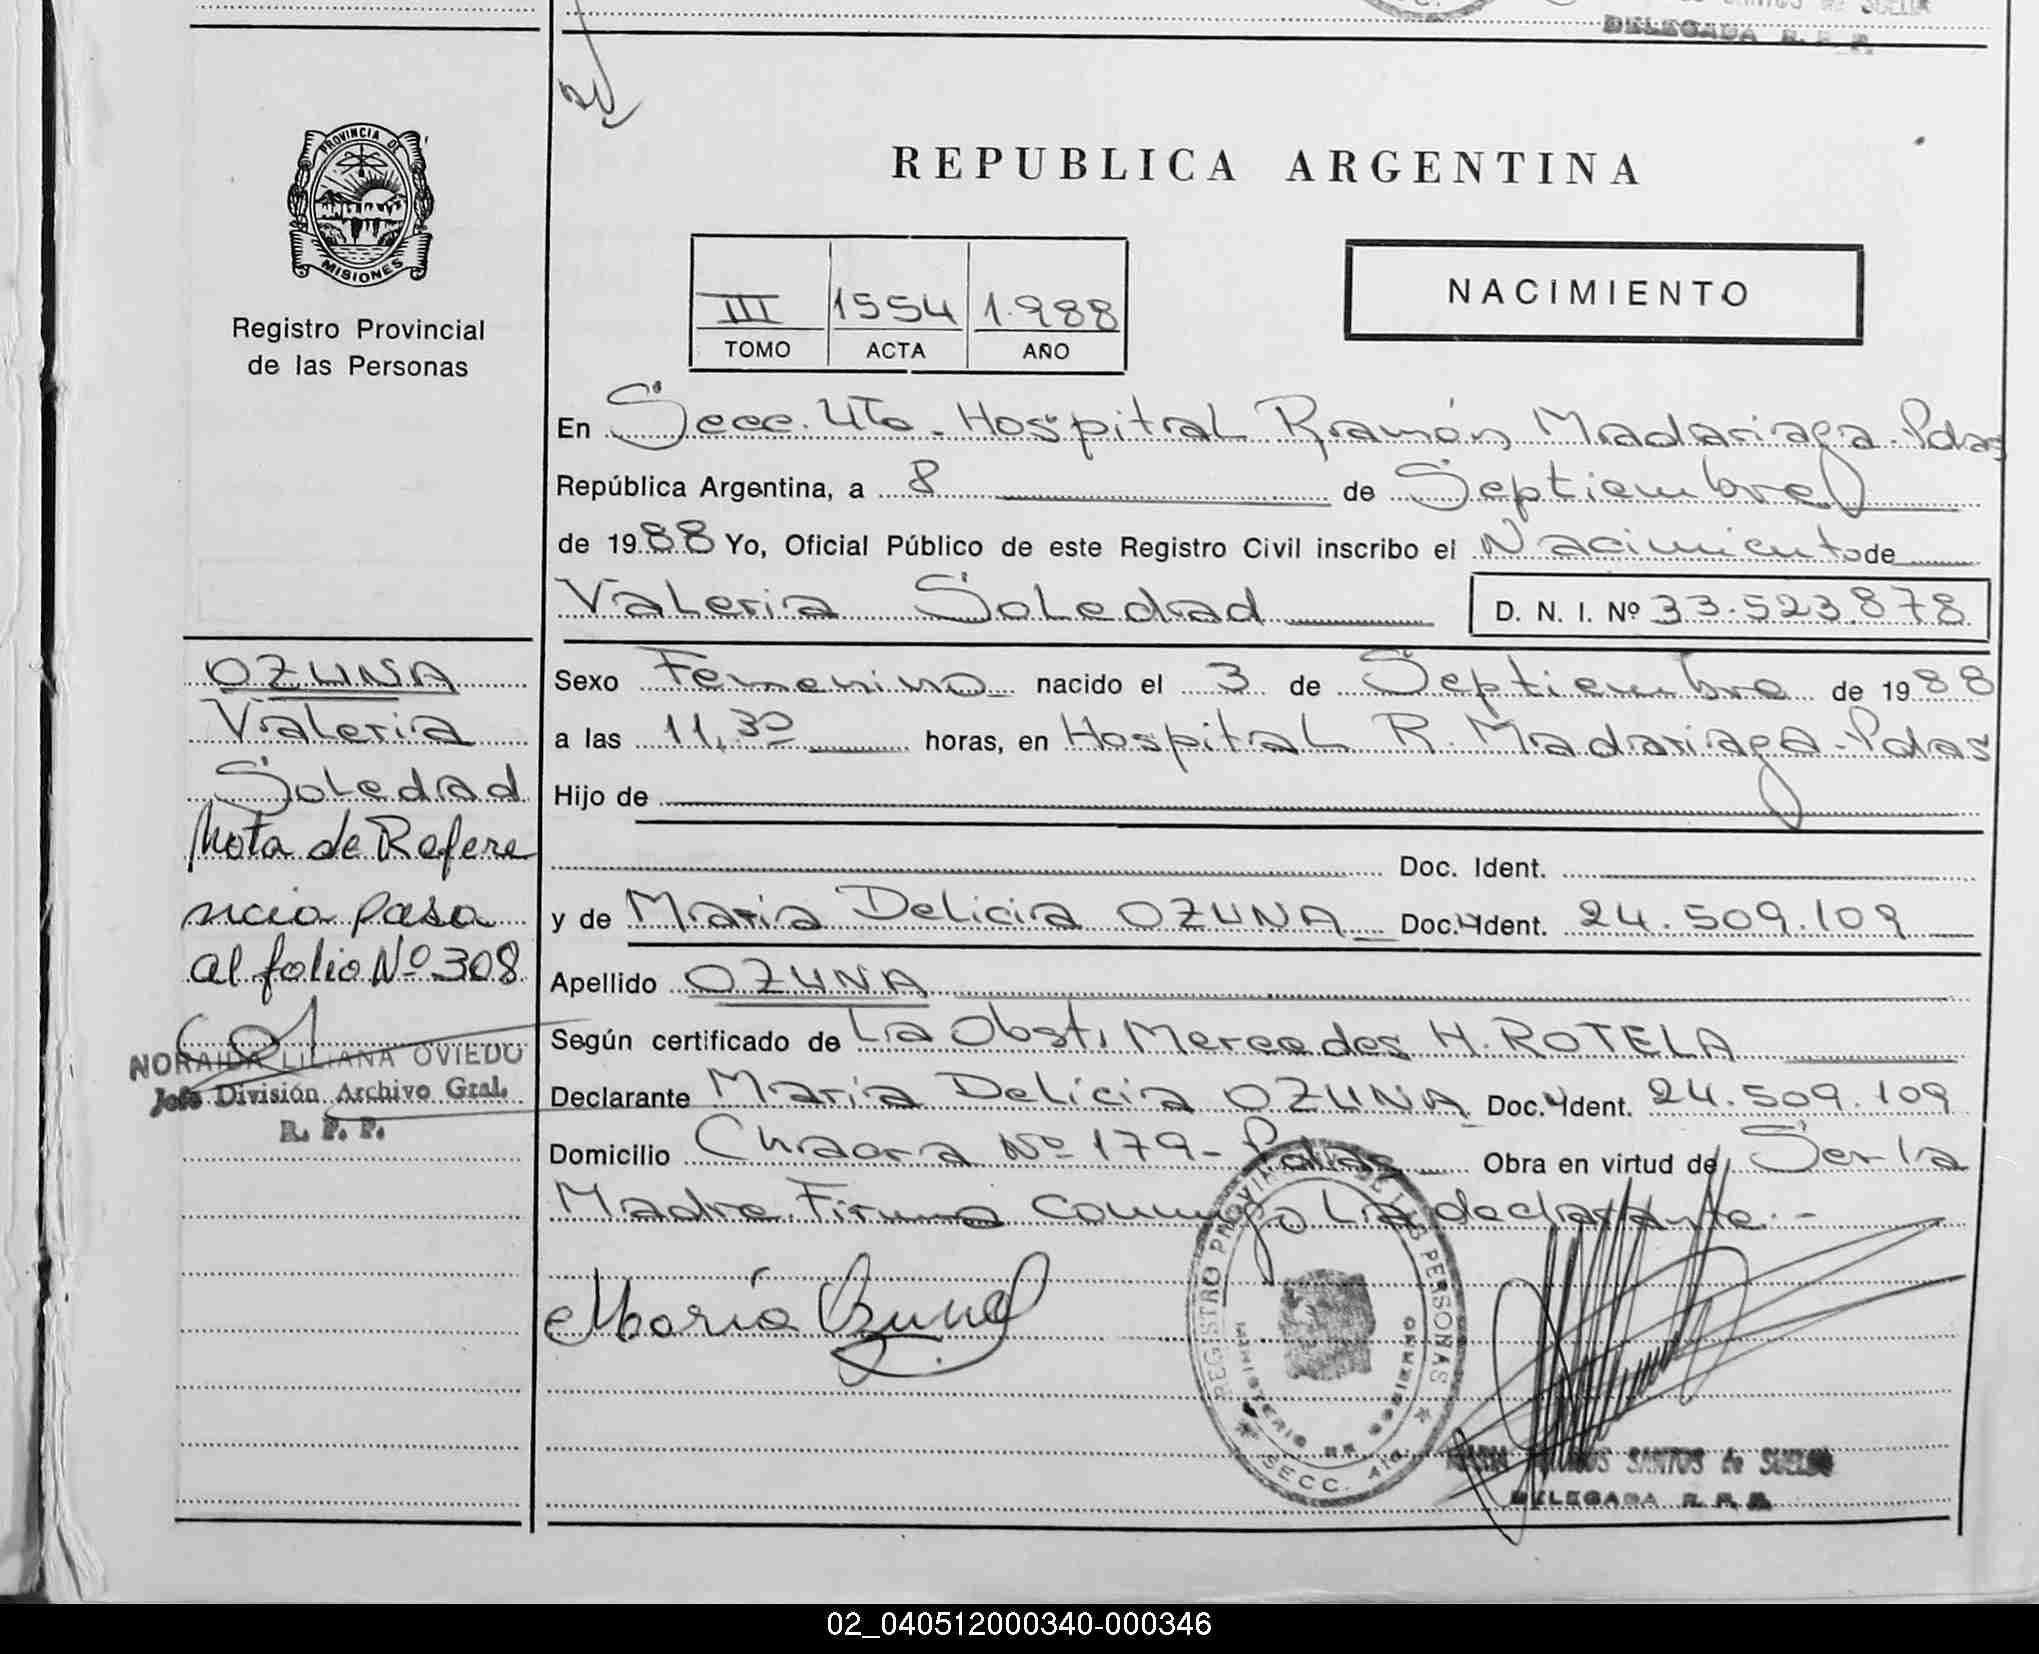 DELEGADA R. P. P.
PROVINCIA DE
MISIONES
Registro Provincial
de las Personas
REPUBLICA ARGENTINA
III 1554 1.988
TOMO ACTA AÑO
NACIMIENTO
En Secc. 4ta. Hospital Ramón Madariaga-Pdas
República Argentina, a 8 de Septiembre
de 1988 Yo, Oficial Público de este Registro Civil inscribo el Nacimiento de
Valeria Soledad D. N. I. Nº 33.523.878
Sexo Femenino nacido el 3 de Septiembre de 1988
a las 11,30 horas, en Hospital R. Madariaga-Pdas
Hijo de
Doc. Ident.
y de Maria Delicia OZUNA Doc. Ident. 24.509.109
Apellido OZUNA
Según certificado de La Obst. Mercedes H. ROTELA
Declarante Maria Delicia OZUNA Doc. Ident. 24.509.109
Domicilio Chacra Nº 179- Pdas Obra en virtud de Ser la
Madre. Firma conmigo La declarante.-
María Ozuna
REGISTRO PROVINCIAL DE LAS PERSONAS
MINISTERIO DE GOBIERNO
SECC. 4ta
SANTOS de SUELDO
DELEGADA R. P. P.
OZUNA
Valeria
Soledad
Nota de Refere
ncia pasa
al folio Nº 308
NORAIDA LILIANA OVIEDO
Jefe División Archivo Gral.
R. P. P.
02_040512000340-000346